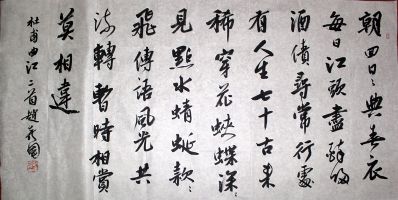 朝回日々典春衣
每日江頭盡醉歸
酒債尋常行處
有人生七十古來
稀穿花蛺蝶深々
見點水蜻蜓款々
飛傳語風光共
流轉暫時相賞
莫相違
杜甫曲江二首趙